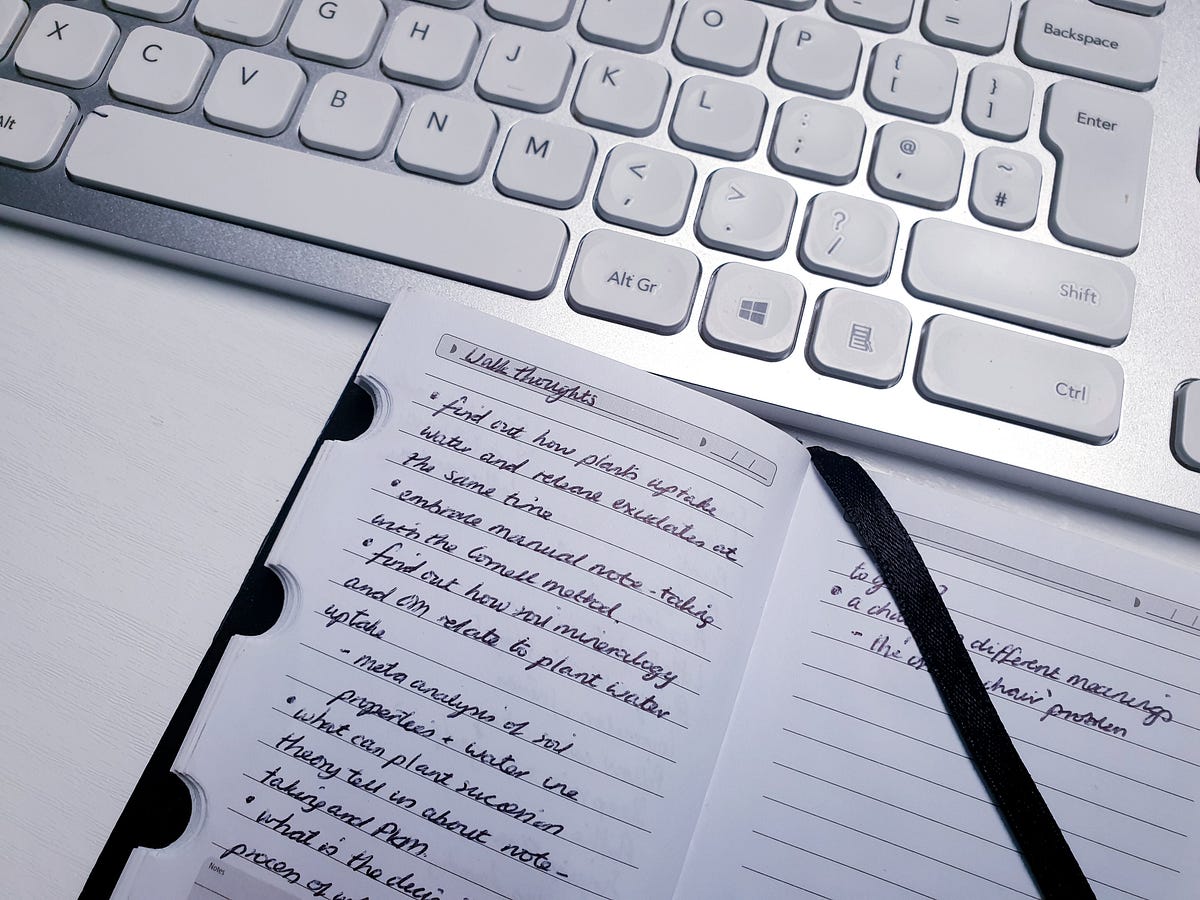 X C V G B H N J M K O L P
{ [
} ]
=
Backspace
Enter
: ;
@ '
~ #
< ,
> .
? /
Alt
Alt Gr
Shift
Ctrl
Walk thoughts
• find out how plants uptake
water and release exudates at
the same time
• embrace manual note-taking
with the Cornell method.
• find out how soil mineralogy
and OM relate to plant water
uptake
- meta analysis of soil
properties + water use
• what can plant succession
theory tell us about note-
taking and PKM.
• what is the
process of
Notes
• a different meanings
- the chair problem